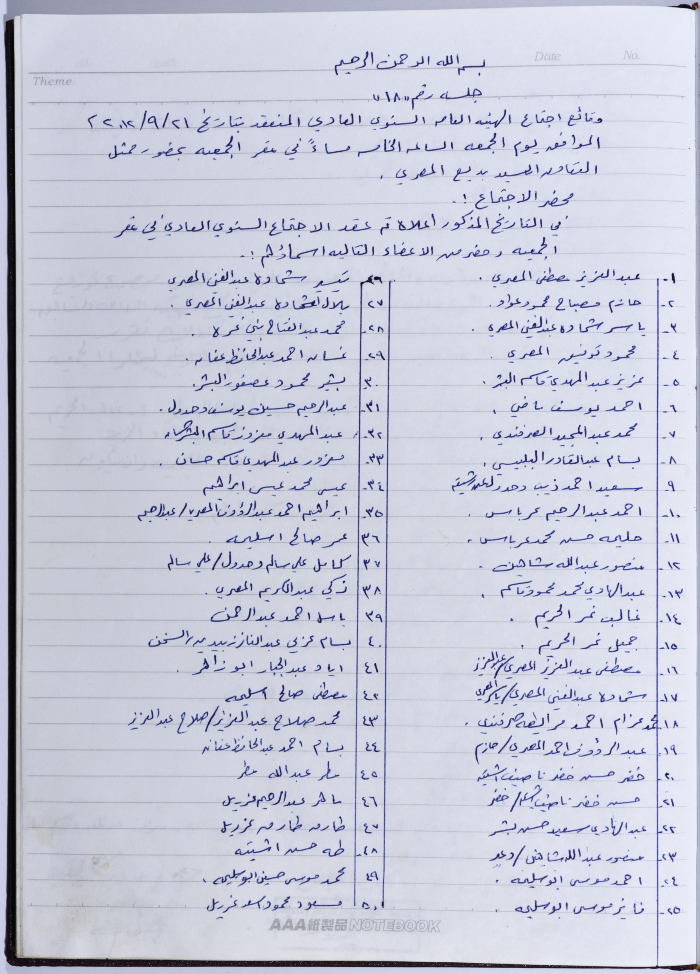 Date No.
Theme
بسم الله الرحمن الرحيم
جلسه رقم "١٨"
وقائع اجتماع الهيئه العامه السنوي العادي المنعقد بتاريخ ٢٠١٢/٩/٢١
الموافق يوم الجمعه الساعه الخامسه مساءً في مقر الجمعيه بحضور ممثل
التعاون السيد بديع المصري .
محضر الاجتماع :.
في التاريخ المذكور اعلاه تم عقد الاجتماع السنوي العادي في مقر
الجمعيه وحضر من الاعضاء التاليه اسماؤهم :.
١- عبد العزيز مصطفى المصري .
٢- حاتم مصباح محمود عواد .
٣- ياسر شحاده عبد الغني المصري .
٤- محمود توفيق المصري .
٥- عزيز عبد المهدي قاسم البشر .
٦- احمد يوسف ماضي .
٧- محمد عبد المجيد الصرفندي .
٨- بسام عبد القادر البلبيسي .
٩- سعيد احمد ذيب وحدول
١٠- احمد عبد الرحيم عرباس .
١١- حليمه حسن محمد عرباس .
١٢- منصور عبد الله شاهين .
١٣- عبد الهادي محمد محمود قاسم .
١٤- غالب نمر الحريم .
١٥- جميل نمر الحريم .
١٦- مصطفى عبد العزيز المصري/عبد العزيز
١٧- شحاده عبد الغني المصري/ياسر المصري
١٨- محمد عزام احمد صرفندي .
١٩- عبد الرؤوف احمد المصري/حازم
٢٠- خضر حسن خضر ناصيف اشتيه
٢١- حسن خضر ناصيف اشتيه/خضر
٢٢- عبد الهادي سعيد حسن بشر
٢٣- منصور عبد الله شاهين/وعد
٢٤- احمد موسى ابو سليمه .
٢٥- فايز موسى ابو سليمه .
٢٦- تيسير شحادة عبد الغني المصري
٢٧- بلال شحاده عبد الغني المصري .
٢٨- محمد عبد الفتاح بني غرة .
٢٩- غسان احمد عبد الحافظ عفانه .
٣٠- بشير محمود عصفور البشر .
٣١- عبد الرحيم حسين يوسف وحدول .
٣٢- عبد المهدي معزوز قاسم البشر
٣٣- معزوز عبد المهدي قاسم حسان .
٣٤- عيسى محمد عيسى ابراهيم
٣٥- ابراهيم احمد عبد الرؤوف المصري/عبد الرحيم
٣٦- عمر صالح اسليمه .
٣٧- كامل علي سالم وحدول/علي سالم
٣٨- زكي عبد الكريم المصري .
٣٩- باسل احمد عبد الرحمن
٤٠- بسام عزمي عبد الفتاح
٤١- اياد عبد الجبار ابو زاهر .
٤٢- مصطفى صالح اسليمه
٤٣- محمد صلاح عبد العزيز/صلاح عبد العزيز
٤٤- بسام احمد عبد الحافظ عفانه
٤٥- مطر عبد الله مطر
٤٦- ماهر عبد الرحيم غزيل
٤٧- طارق طارق غزيل
٤٨- طه حسن اشتيه
٤٩- محمد موسى حسين ابو سليمه .
٥٠- مسعود محمود اسعد غزيل
AAA紙製品 NOTEBOOK